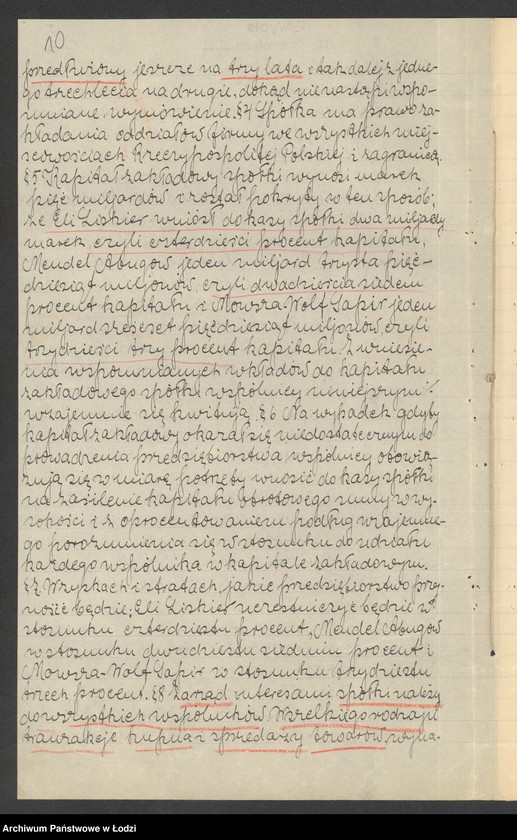 10
przedłużony jeszcze na trzy lata i tak dalej z jedne-
go trzechlecia na drugie, dokąd nie nastąpi wspo-
mniane wymówienie. § 4 Spółka ma prawo za-
kładania oddziałów firmy we wszystkich miej-
scowościach Rzeczypospolitej Polskiej i zagranicą.
§ 5 Kapitał zakładowy spółki wynosi marek
pięć miljardów i został pokryty w ten sposób,
że Eli Liskier wniósł do kasy spółki dwa miljardy
marek, czyli czterdzieści procent kapitału,
Mendel Abugow jeden miljard trzysta pięć-
dziesiąt miljonów, czyli dwadzieścia siedem
procent kapitału i Mowsza-Wolf Sapir jeden
miljard sześćset pięćdziesiąt miljonów, czyli
trzydzieści trzy procent kapitału. Z wniesie-
nia wspomnianych wkładów do kapitału
zakładowego spółki wspólnicy niniejszym
wzajemnie się kwitują. § 6 Na wypadek gdyby
kapitał zakładowy okazał się niedostatecznym do
prowadzenia przedsiębiorstwa, wspólnicy obowią-
zują się w miarę potrzeby wnosić do kasy spółki
na zasilenie kapitału obrotowego sumy w wy-
sokości i z oprocentowaniem podług wzajemne-
go porozumienia się w stosunku do udziału
każdego wspólnika w kapitale zakładowym.
§ 7 W zyskach i stratach, jakie przedsiębiorstwo przy-
nosić będzie, Eli Liskier uczestniczyć będzie w
stosunku czterdziestu procent, Mendel Abugow
w stosunku dwudziestu siedmiu procent i
Mowsza-Wolf Sapir w stosunku trzydziestu
trzech procent. § 8 Zarząd interesami spółki należy
do wszystkich wspólników. Wszelkiego rodzaju
tranzakcje kupna i sprzedaży towarów, wyna-
Archiwum Państwowe w Łodzi